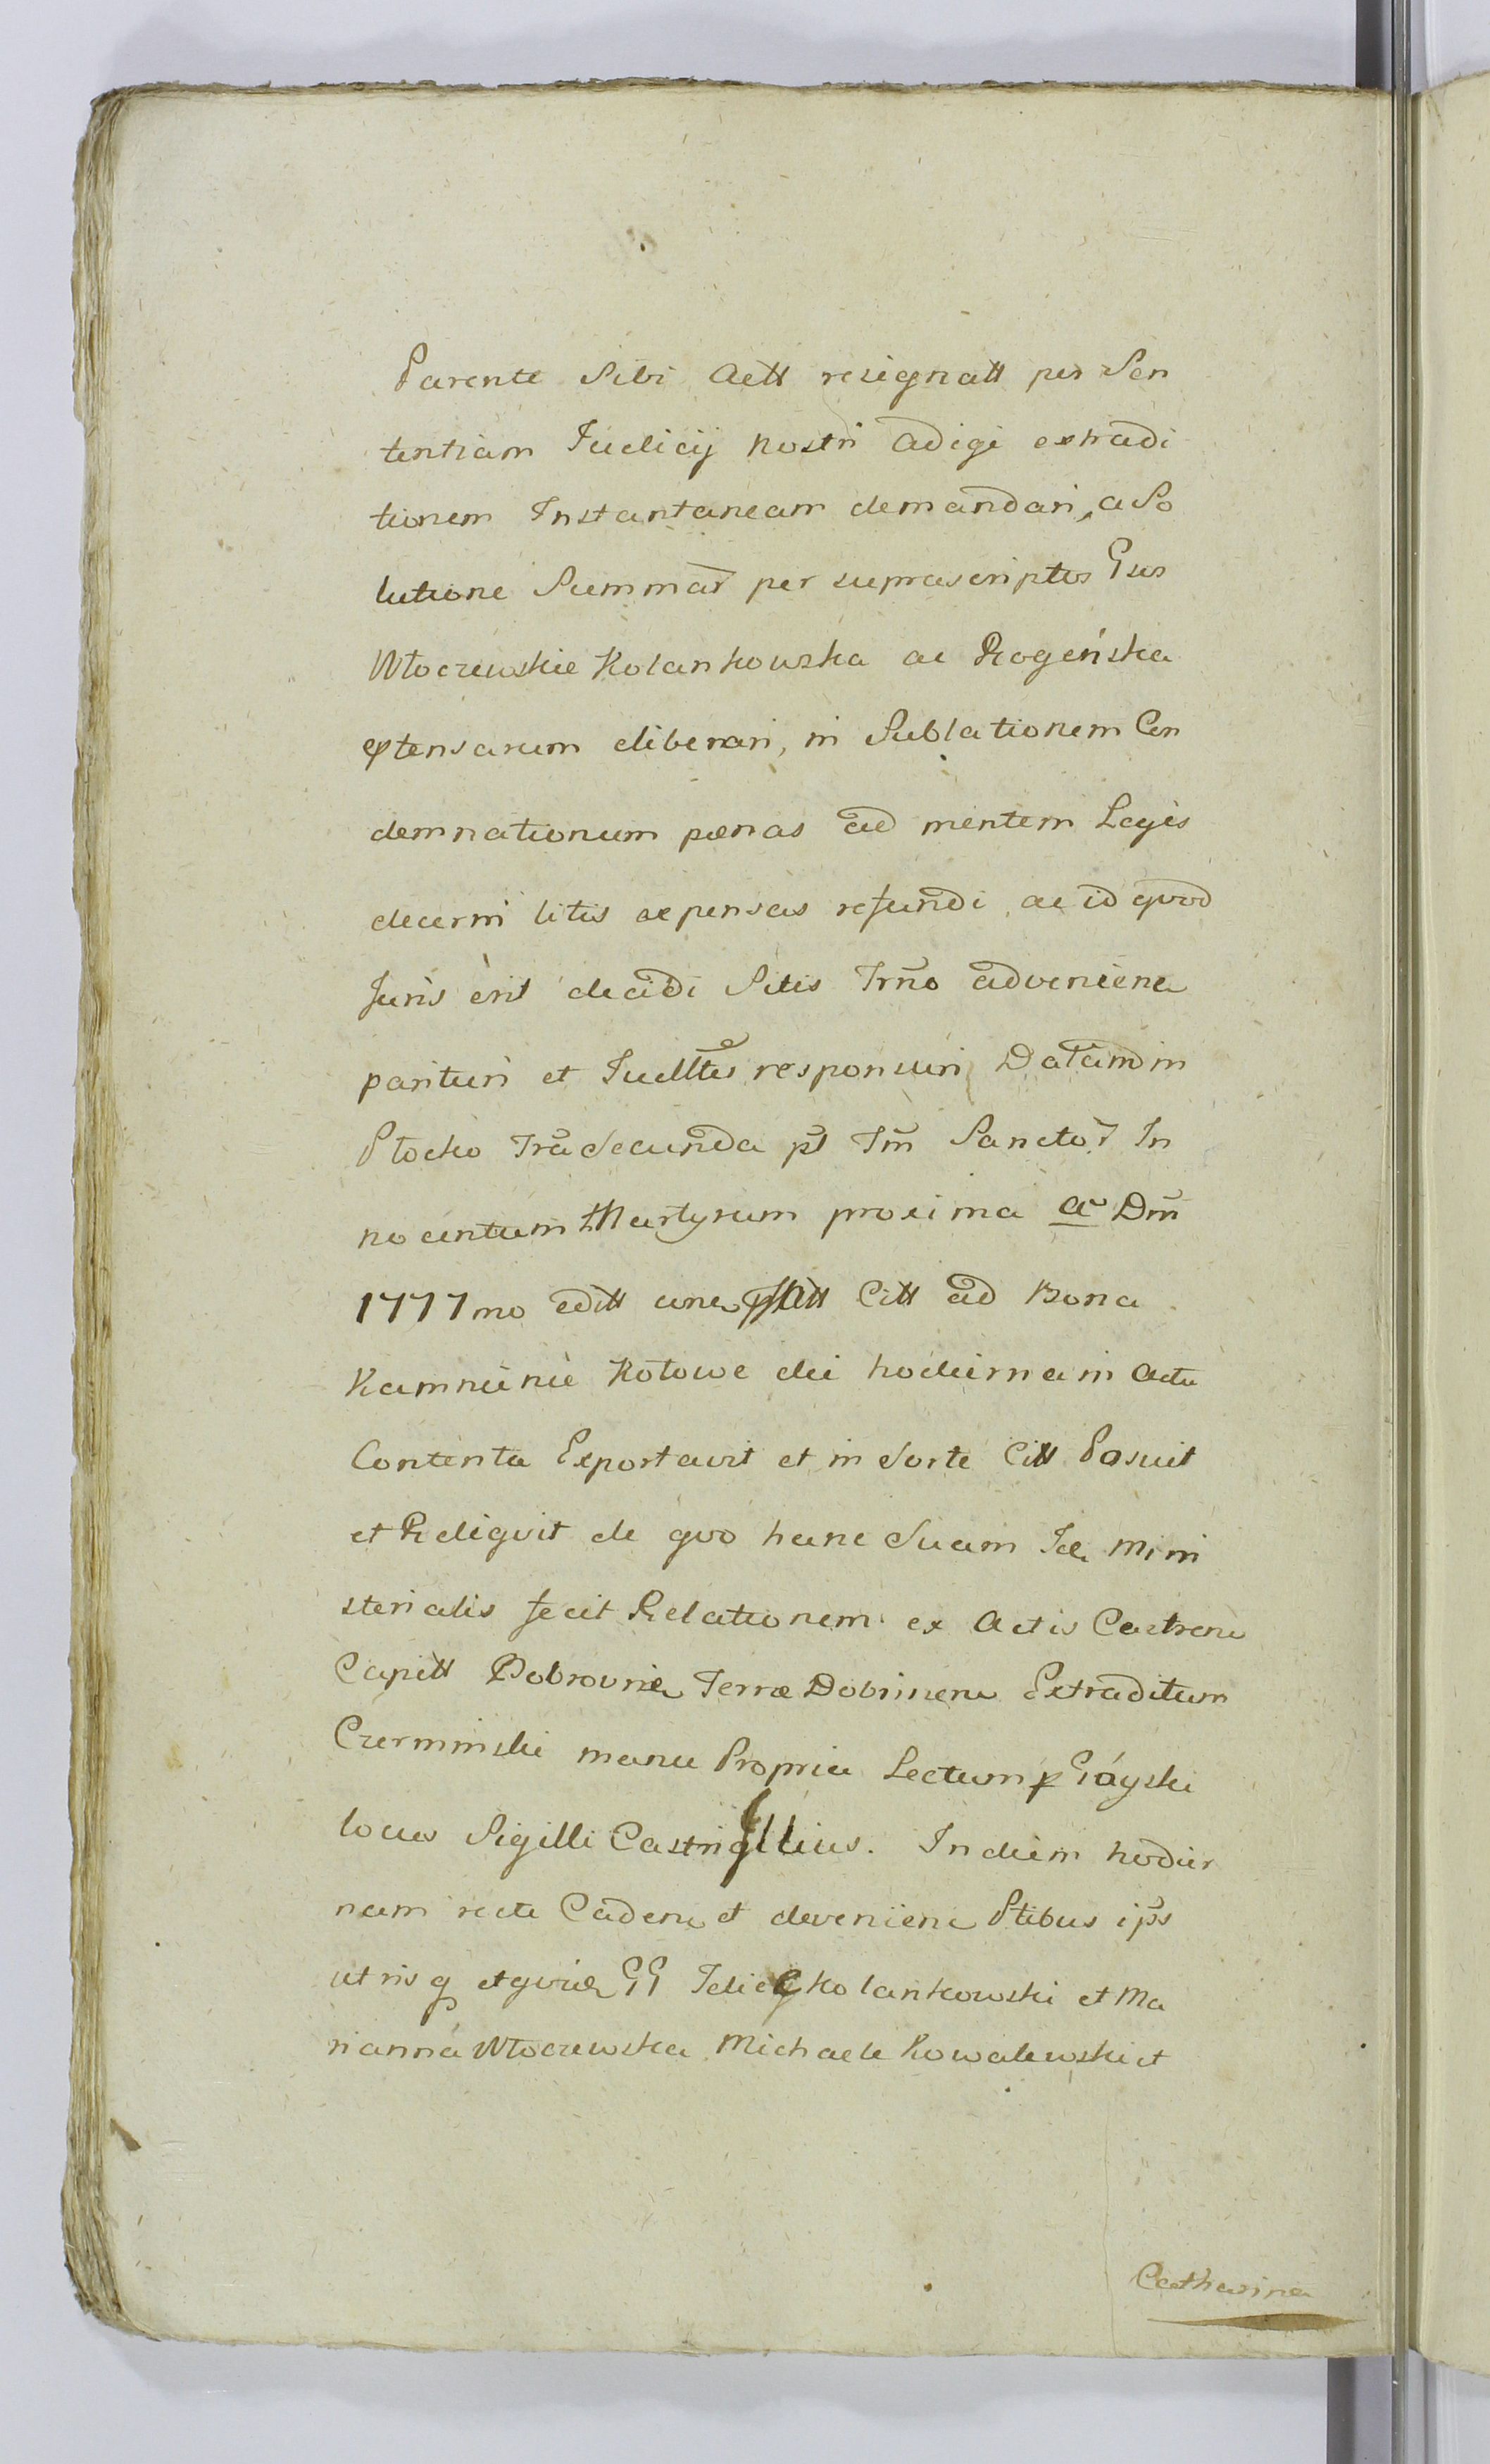 Parente Sibi Actt resignatt per Sen
tentiam Judicij nostri adigi extradi
tionem Instantaneam demandari, a So
lutione Summar per suprascriptos Gsos
Włoczewskie Kolankowska ac Rogeńska
extensarum liberari, in Sublationem Con
demnationum pœnas ad mentem Legis
decerni litis expensas refundi, ac id qvod
Juris erit decidi Sitis Trno adveniene
parituri et Judltes responsuri Datum in
Płocko Fra Secunda pt Fm Sanctor In
nocentum Martyrum proxima ao Dni
1777mo editt Citt ad Bona
Kamninie Kotowe die hodierna in actu
Contenta Exportavit et in Sorte Citt Posuit
et Reliqvit de qvo hanc Suam Id Mini
sterialis fecit Relationem ex Actis Castren
Capitt Bobrovnie Terræ Dobrinen Extraditum
Czerminski manu Propria Lectum p Gáyski
locus Sigilli Castri Illius. In diem hodier
nam recte Caden et devenien Ptibus ips
utrisq etqvide GG Felice Kolankowski et Ma
rianna Włoczewska Michaele Kowalewski et
Catharina